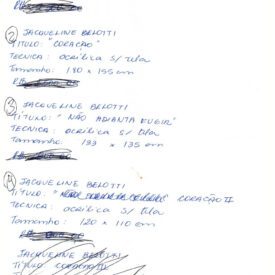 ② JACQUELINE BELOTTI
TITULO: "CORAÇÃO"
TECNICA: acrílica s/ tela
Tamanho: 180 x 155 cm
③ JACQUELINE BELOTTI
TÍTULO: "NÃO ADIANTA FUGIR"
TECNICA: acrílica s/ tela
Tamanho: 193 x 135 cm
JACQUELINE BELOTTI
TÍTULO: CORAÇÃO II
TECNICA: acrílica s/ tela
Tamanho: 120 x 110 cm
JACQUELINE BELOTTI
TÍTULO CORAÇÃO II